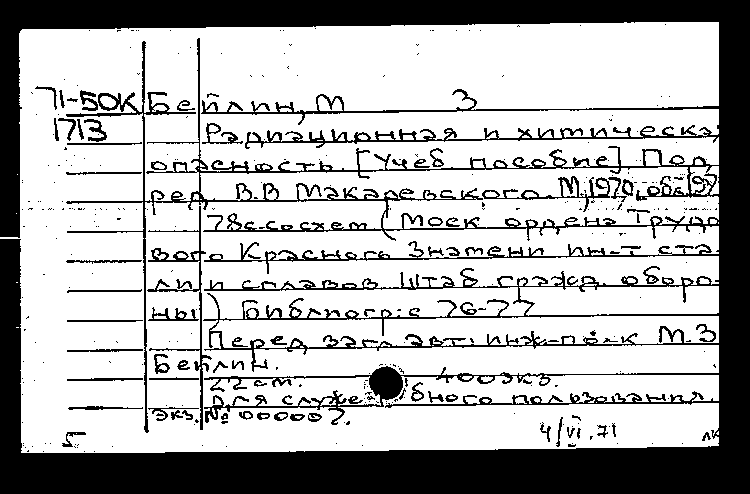 71-50К Бейлин, М З
1713 Радиационная и химическа
опасность. [Учеб пособие] Под
ред. В.В Макаревского. М, 1970, обл 197
78с. со схем (Моск ордена Трудо
вого Красного Знамени ин-т ста-
ли и сплавов Штаб гражд. оборо-
ны) Библиогр: с 76-77
Перед загл авт: инж-полк М.З
Бейлин.
22 см. 400 экз.
Для служебного пользования.
экз. № 000002.
5 4/VI.71 лк